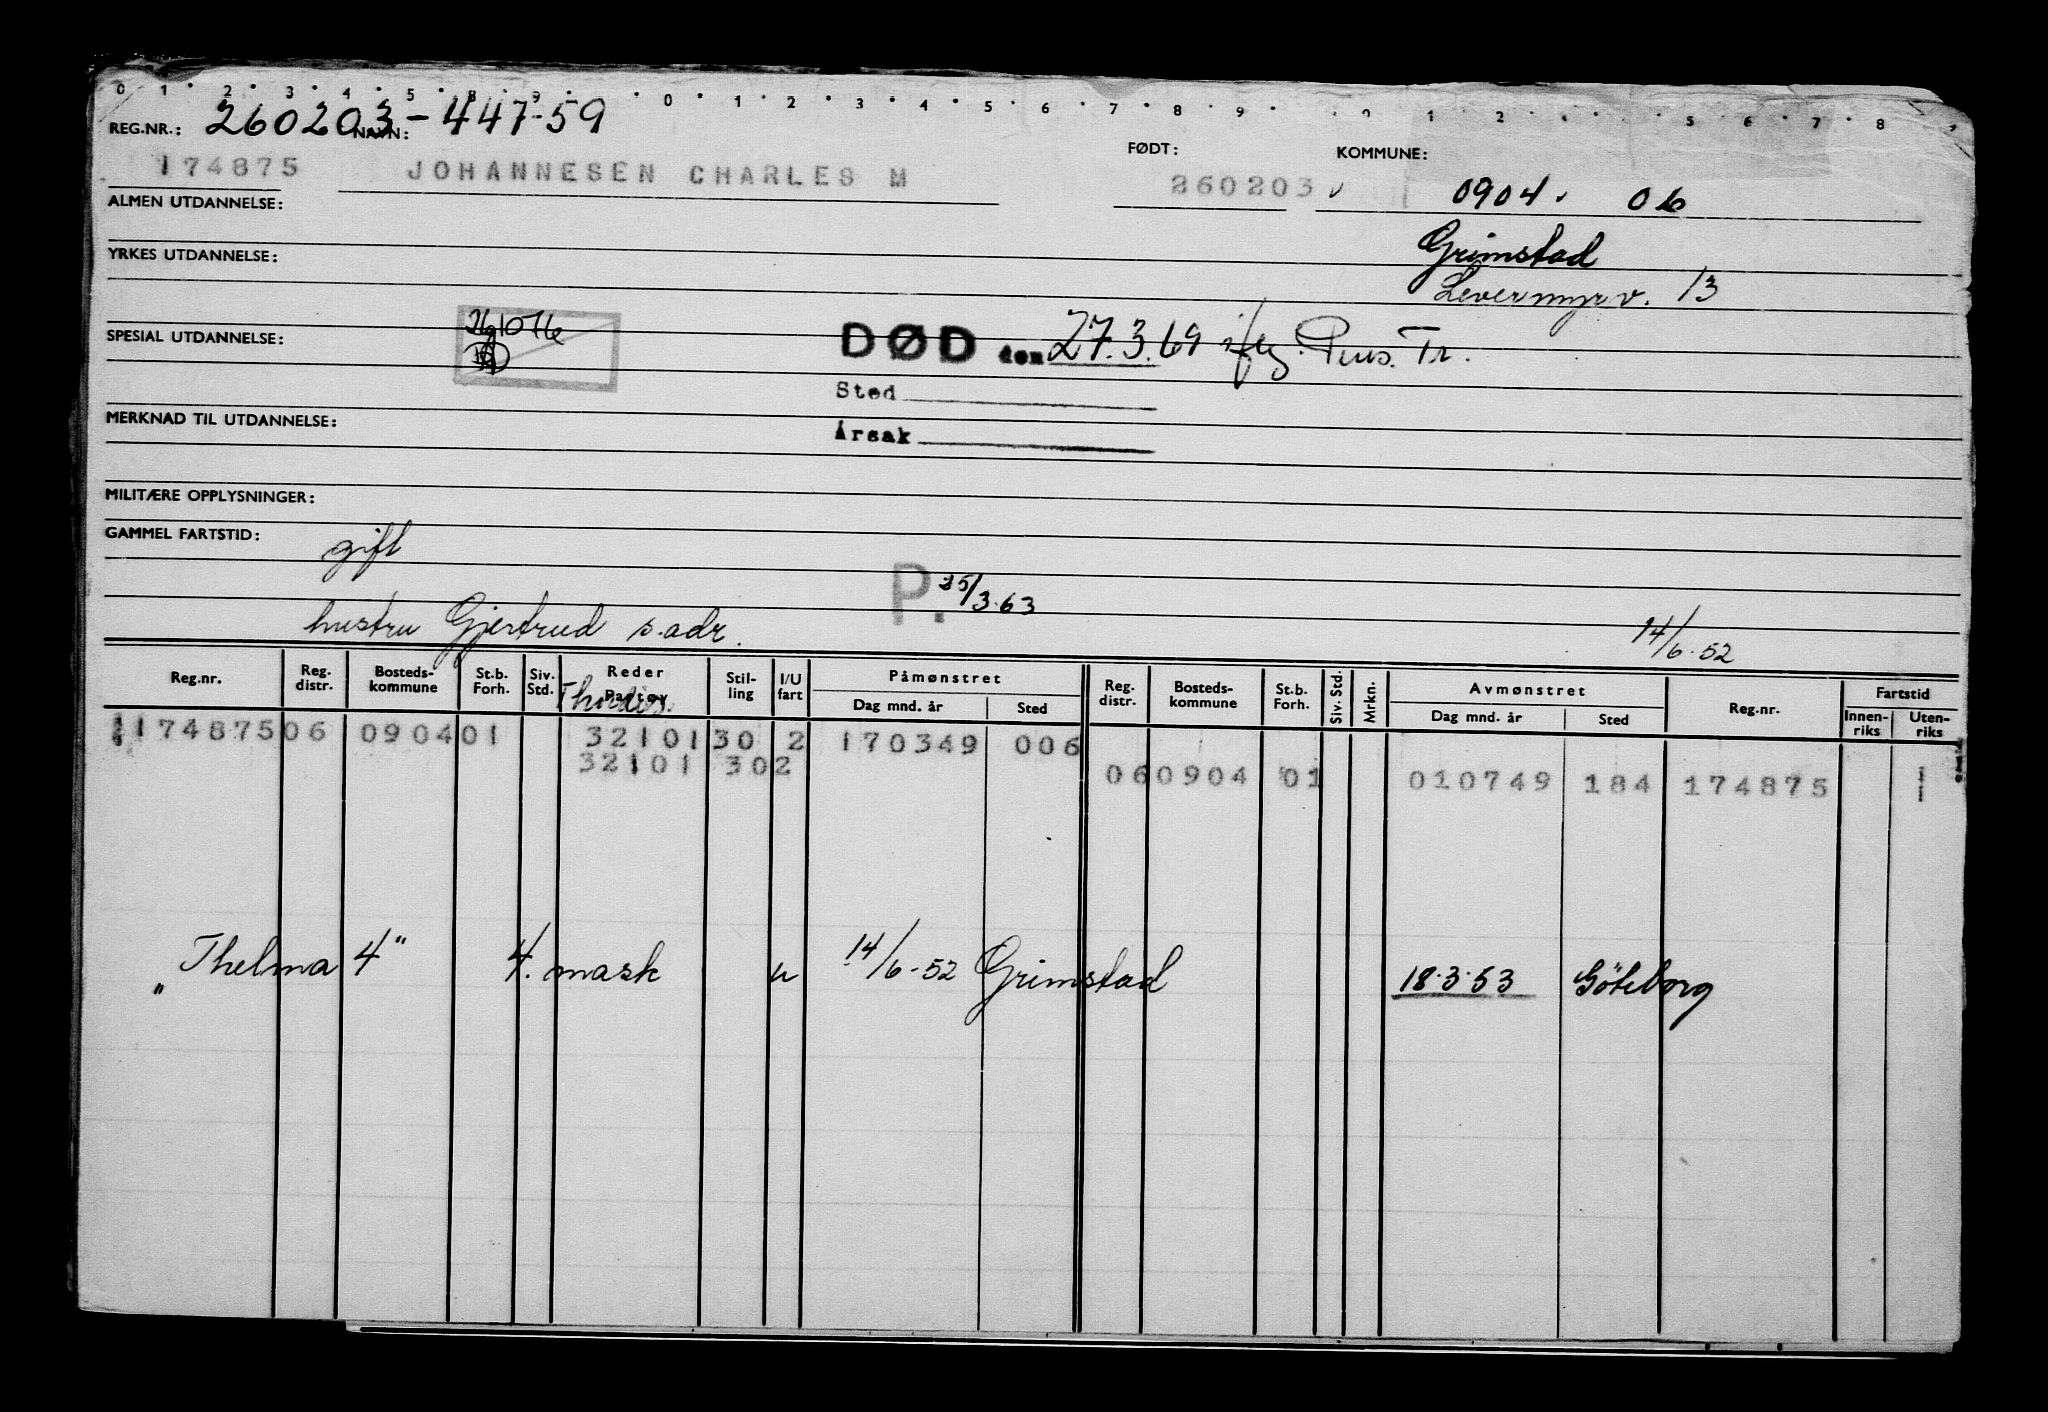 0 1 2 3 4 5 8 9 0 1 2 3 4 5 6 7 8 9 1 2 5 6 7 8
REG.NR.: 260203-447-59 NAVN: FØDT: KOMMUNE:
174875 JOHANNESEN CHARLES M 260203 0904 06
ALMEN UTDANNELSE:
Grimstad
YRKES UTDANNELSE:
Levermyrv. 13
SPESIAL UTDANNELSE: DØD den 27.3.69 iflg. Pens. Tr.
Sted
MERKNAD TIL UTDANNELSE:
Årsak
MILITÆRE OPPLYSNINGER:
GAMMEL FARTSTID:
gift
P. 25/3.63
hustru Gjertrud s. adr. 14/6-52
Reg.nr. Reg. distr. Bosteds-kommune St.b. Forh. Siv. Std. Reder Partøy Stil-ling I/U fart Påmønstret Dag mnd. år Sted Reg. distr. Bosteds-kommune St.b. Forh. Siv. Std. Mrkn. Avmønstret Dag mnd. år Sted Reg.nr. Fartstid Innen-riks Uten-riks
Thordis.
174875 06 0904 01 32101 30 2 170349 006
32101 30 2 06 0904 01 010749 184 174875
"Thelma 4" 4. mask u 14/6-52 Grimstad 18.3.53 Göteborg